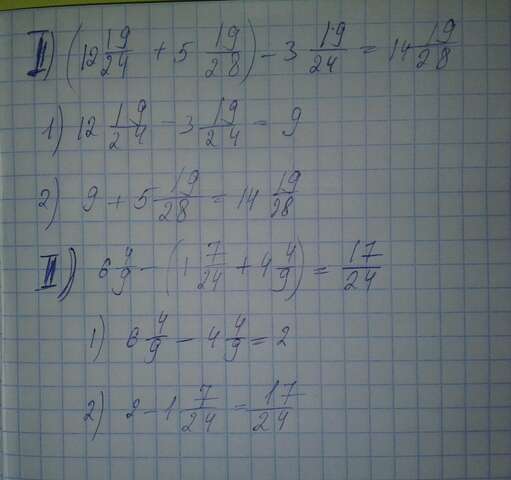 I) (12 19/24 + 5 19/28) - 3 19/24 = 14 19/28
1) 12 19/24 - 3 19/24 = 9
2) 9 + 5 19/28 = 14 19/28
II) 6 4/9 - (1 7/24 + 4 4/9) = 17/24
1) 6 4/9 - 4 4/9 = 2
2) 2 - 1 7/24 = 17/24